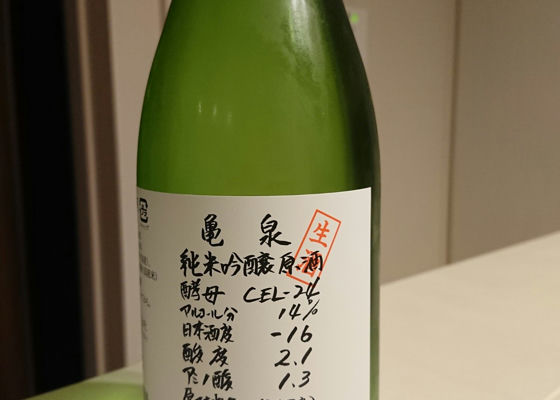 亀泉
生酒
純米吟醸原酒
酵母 CEL-24
アルコール分 14%
日本酒度 -16
酸度 2.1
アミノ酸 1.3